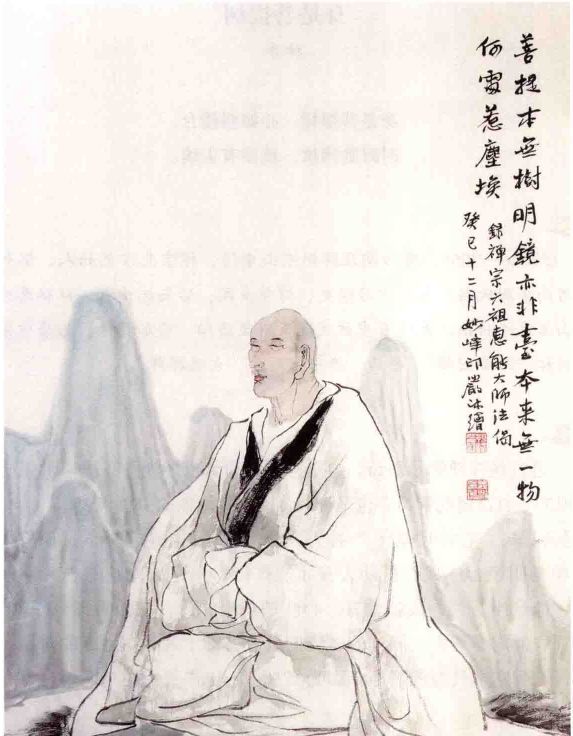 菩提本無樹明鏡亦非臺本来無一物
何處惹塵埃
錄禪宗六祖惠能大师法偈
癸巳十二月妙峰印嚴沐繪